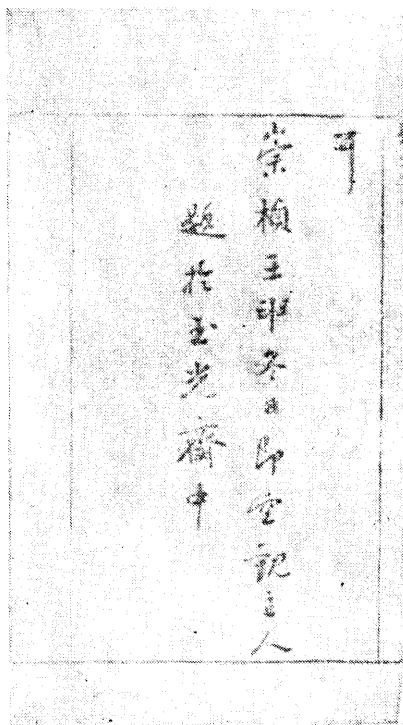 耳
崇禎壬申冬日即空觀主人
題於玉光齋中